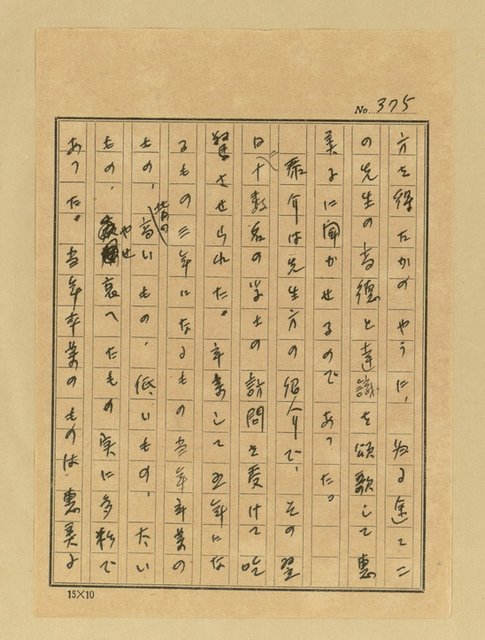 No. 375
方を得たかのやうに、為る途てニ
の先生の高徳と達識を頌歌して恵
美子に聞かせるのであつた。
泰介は先生方の紹介で、その翌
日十数名の学士の訪問を受けて吃
驚させられた。卒業して五年にな
るもの三年になるもの当年卒業の
もの、背の高いもの、低いもの、たい
もの、やせ衰へたもの実に多数で
あつた。当年卒業のものは恵美子
15×10